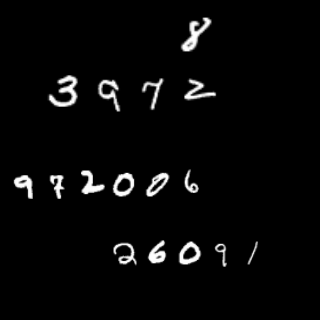 8
3972
972006
26091